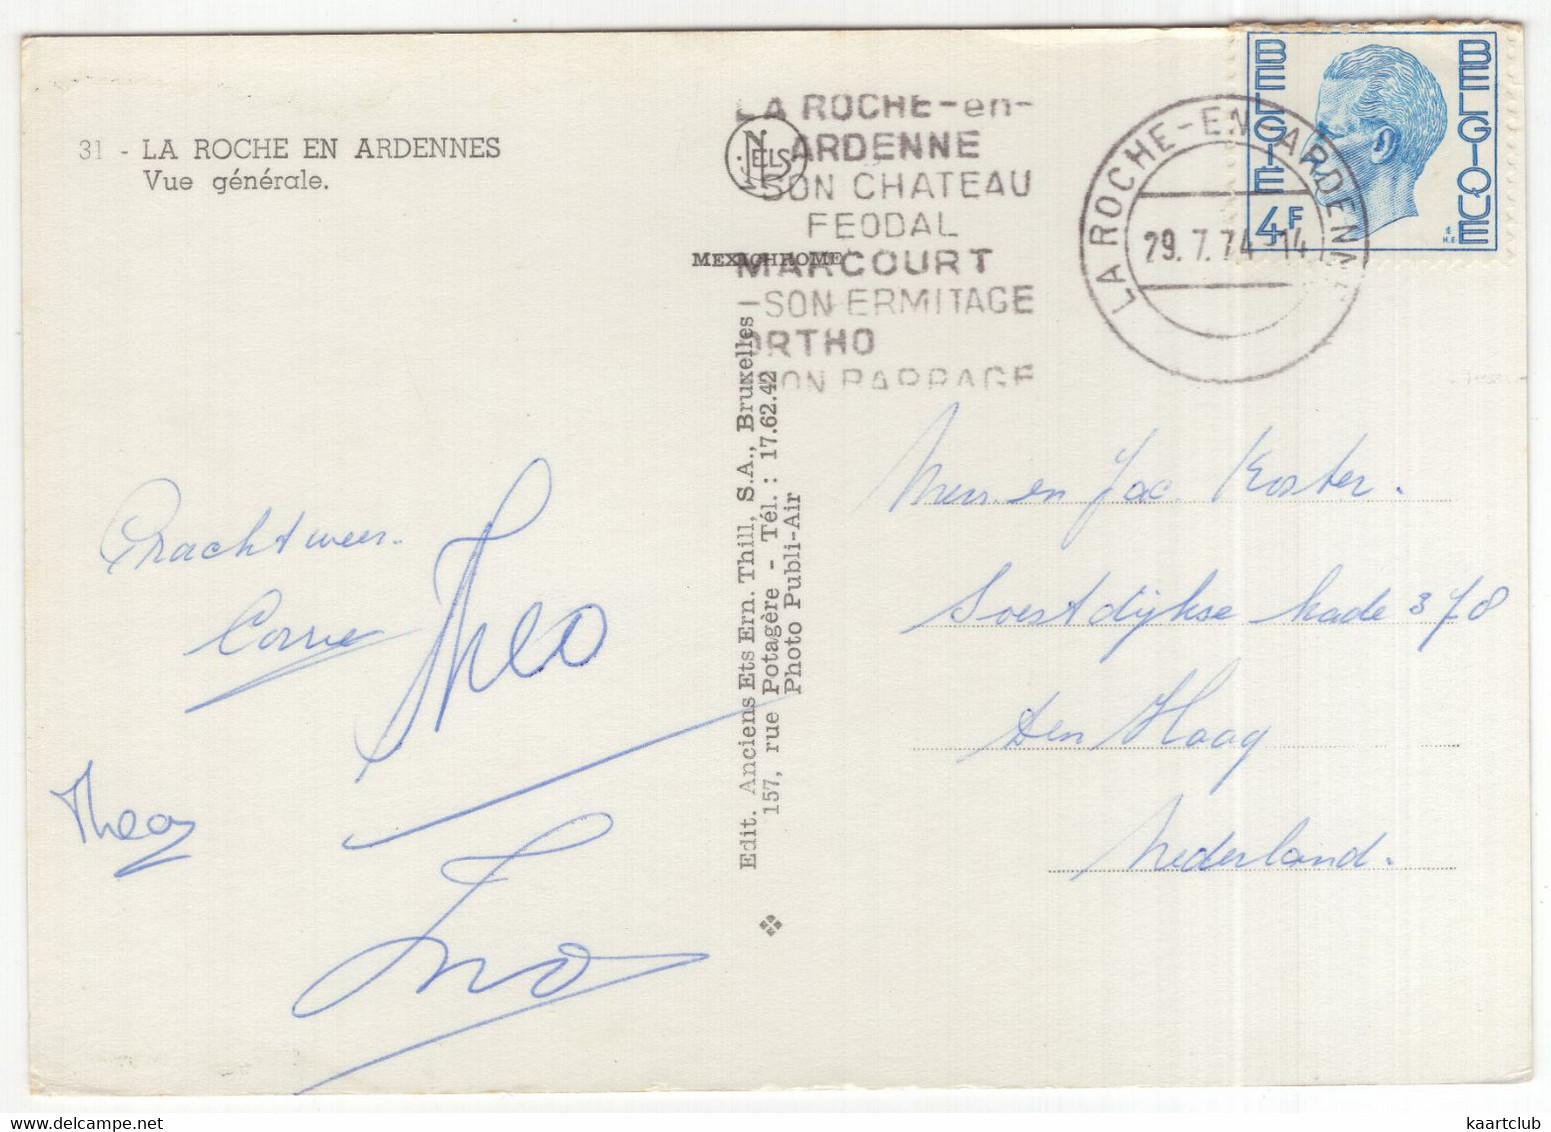 31 - LA ROCHE EN ARDENNES
Vue générale.
NELS
MEXACHROME
Edit. Anciens Ets Ern. Thill, S.A., Bruxelles -
157, rue Potagère - Tél. : 17.62.42
Photo Publi-Air
LA ROCHE-en-
ARDENNE
SON CHATEAU
FEODAL
MARCOURT
SON ERMITAGE
ORTHO
SON BARRAGE
LA ROCHE-EN-ARDENNE
29.7.74-14
BELGIE
BELGIQUE
4F
Prachtweer.
Corrie
Theo
Thea
en Jac. Koster.
Soestdijkse kade 378
Den Haag
Nederland.
kaartclub
www.delcampe.net